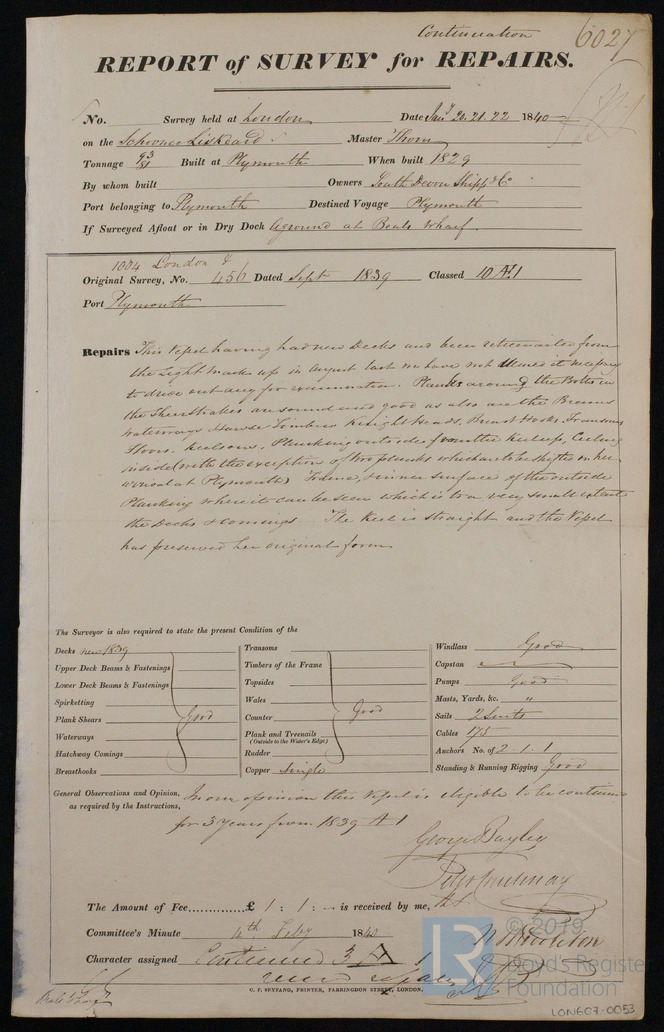 Continuation
6027
REPORT of SURVEY for REPAIRS.
No. Survey held at London Date Jany 20.21.22 1840
on the Schooner Liskeard Master Thom
Tonnage 93/81 Built at Plymouth When built 1829
By whom built Owners South Devon Shipp & Co
Port belonging to Plymouth Destined Voyage Plymouth
If Surveyed Afloat or in Dry Dock Aground at Beals Wharf.
1004 London &
Original Survey, No. 456 Dated Sept 1839 Classed 10 A1
Port Plymouth
Repairs This Vessel having had new Decks and been retreenailed from
the Light mark up in August last we have not deemed it necessary
to drive out any for examination. Planks around the Bolts in
the Sheerstrakes are sound and good as also are the Breams
Waterways Hawse Timbers Knight Heads, Breast Hooks, Transoms
Floors. Keelsons. Planking outside from the Keel up, Ceiling
inside (with the exception of two planks which are to be shifted on her
arrival at Plymouth) Frame, & inner surface of the outside
Planking where it can be seen which is to a very small extent
the Decks & Comings The Keel is straight and the Vessel
has preserved her original form
The Surveyor is also required to state the present Condition of the
Decks new 1839
Upper Deck Beams & Fastenings
Lower Deck Beams & Fastenings
Spirketting
Plank Shears
Good
Waterways
Hatchway Comings
Breasthooks
Transoms
Timbers of the Frame
Topsides
Wales
Counter
Good
Plank and Treenails
(Outside to the Water's Edge)
Rudder
Copper single
Windlass Good
Capstan
Pumps Good
Masts, Yards, &c. "
Sails 2 Suits
Cables 175
Anchors No. of 2.1.1
Standing & Running Rigging Good
General Observations and Opinion, In our opinion this Vessel is eligible to be continued
as required by the Instructions, for 3 Years from 1839 A1
George Bayley
The Amount of Fee £ 1 : 1 : — is received by me,
Committee's Minute 4th Feby 1840
Character assigned Continued 3 A 1
C. F. SEYFANG, PRINTER, FARRINGDON STREET, LONDON.
Beals Wharf
LR © 2019
Lloyd's Register
Foundation
LON607-0053